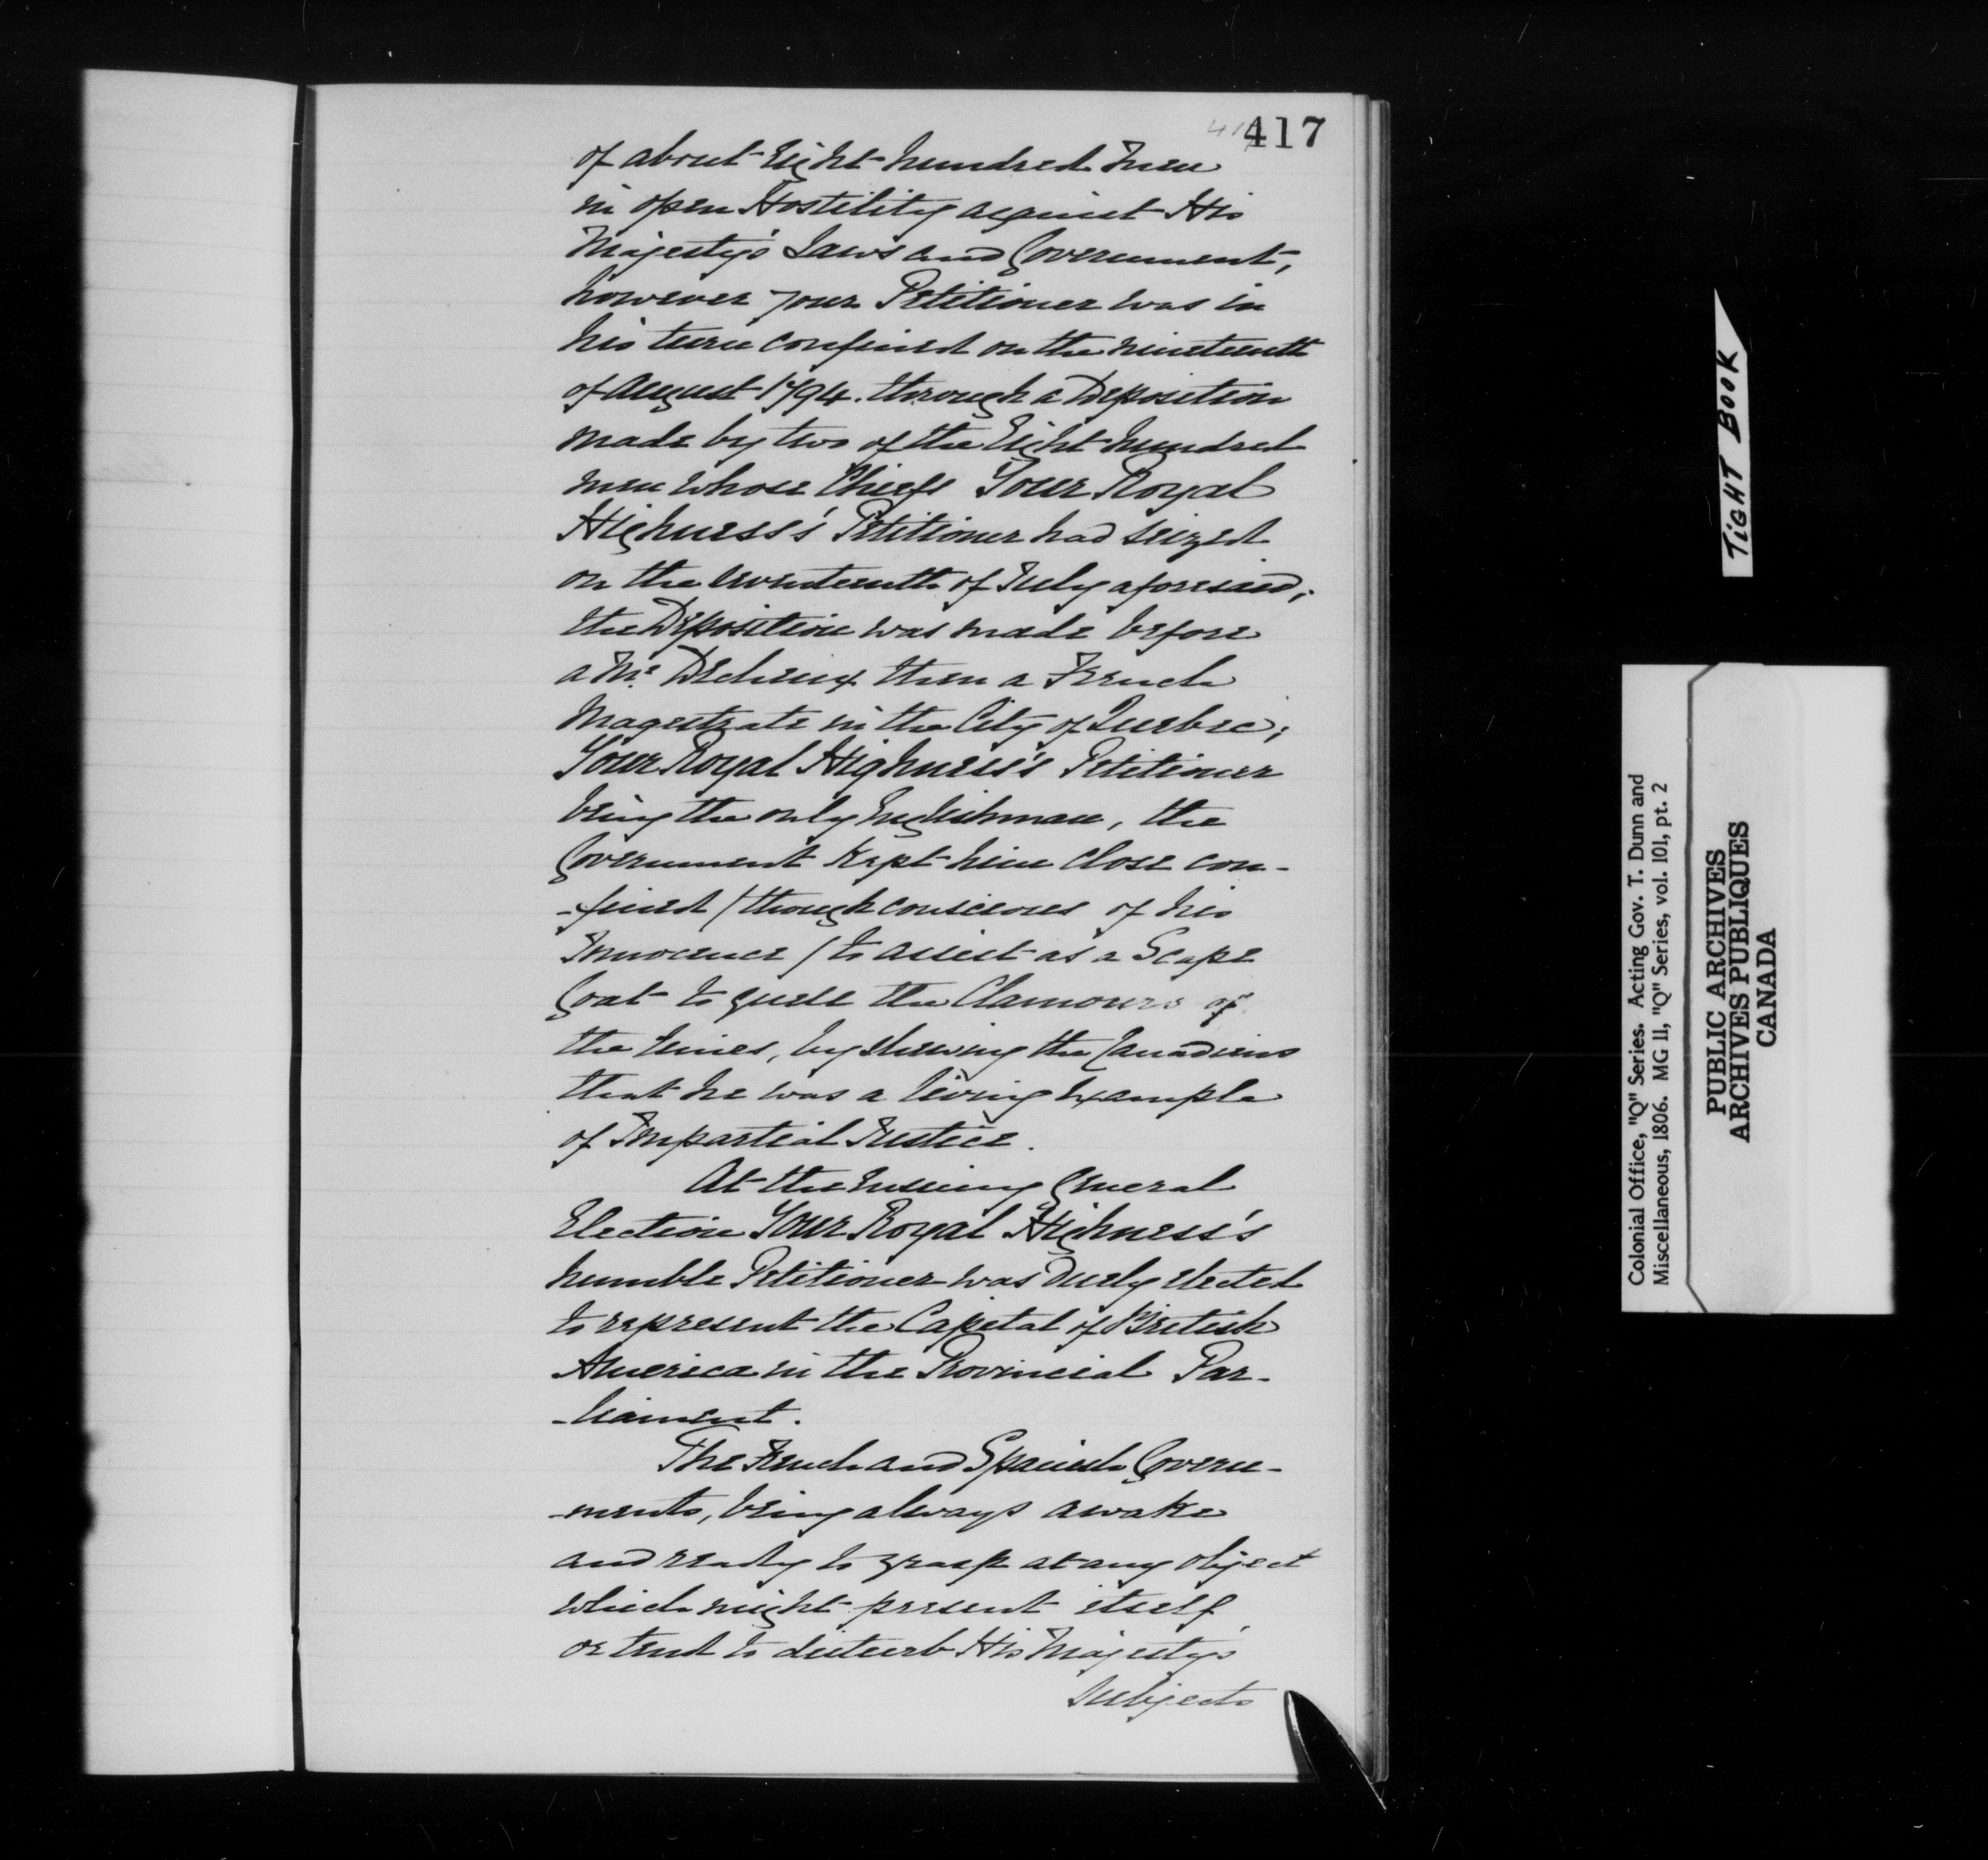 417
417
of about Eight hundred Men
in open Hostility against His
Majesty's Laws and Government,
however your Petitioner was in
his turn confined on the nineteenth
of August 1794. through a Deposition
made by two of the Eight hundred
men whose Chiefs Your Royal
Highness's Petitioner had seized
on the seventeenth of July aforesaid;
the Deposition was made before
a Mr. Decheux then a French
Magestrate in the City of Quebec;
Your Royal Highness's Petitioner
being the only Englishman, the
Government kept him close con-
-fined / though conscious of his
Innocence / to assist as a Scape
Goat to quell the Clamours of
the times, by shewing the Canadians
that he was a living Example
of Impartial Justice.
At the ensuing General
Election Your Royal Highness's
humble Petitioner was duly elected
to represent the Capital of British
America in the Provincial Par-
-liament.
The French and Spanish Govern-
-ments, being always awake
and ready to grasp at any object
which might present itself,
or tend to disturb His Majesty's
Subjects
TIGHT BOOK
Colonial Office, "Q" Series. Acting Gov. T. Dunn and
Miscellaneous, 1806. MG 11, "Q" Series, vol. 101, pt. 2
PUBLIC ARCHIVES
ARCHIVES PUBLIQUES
CANADA